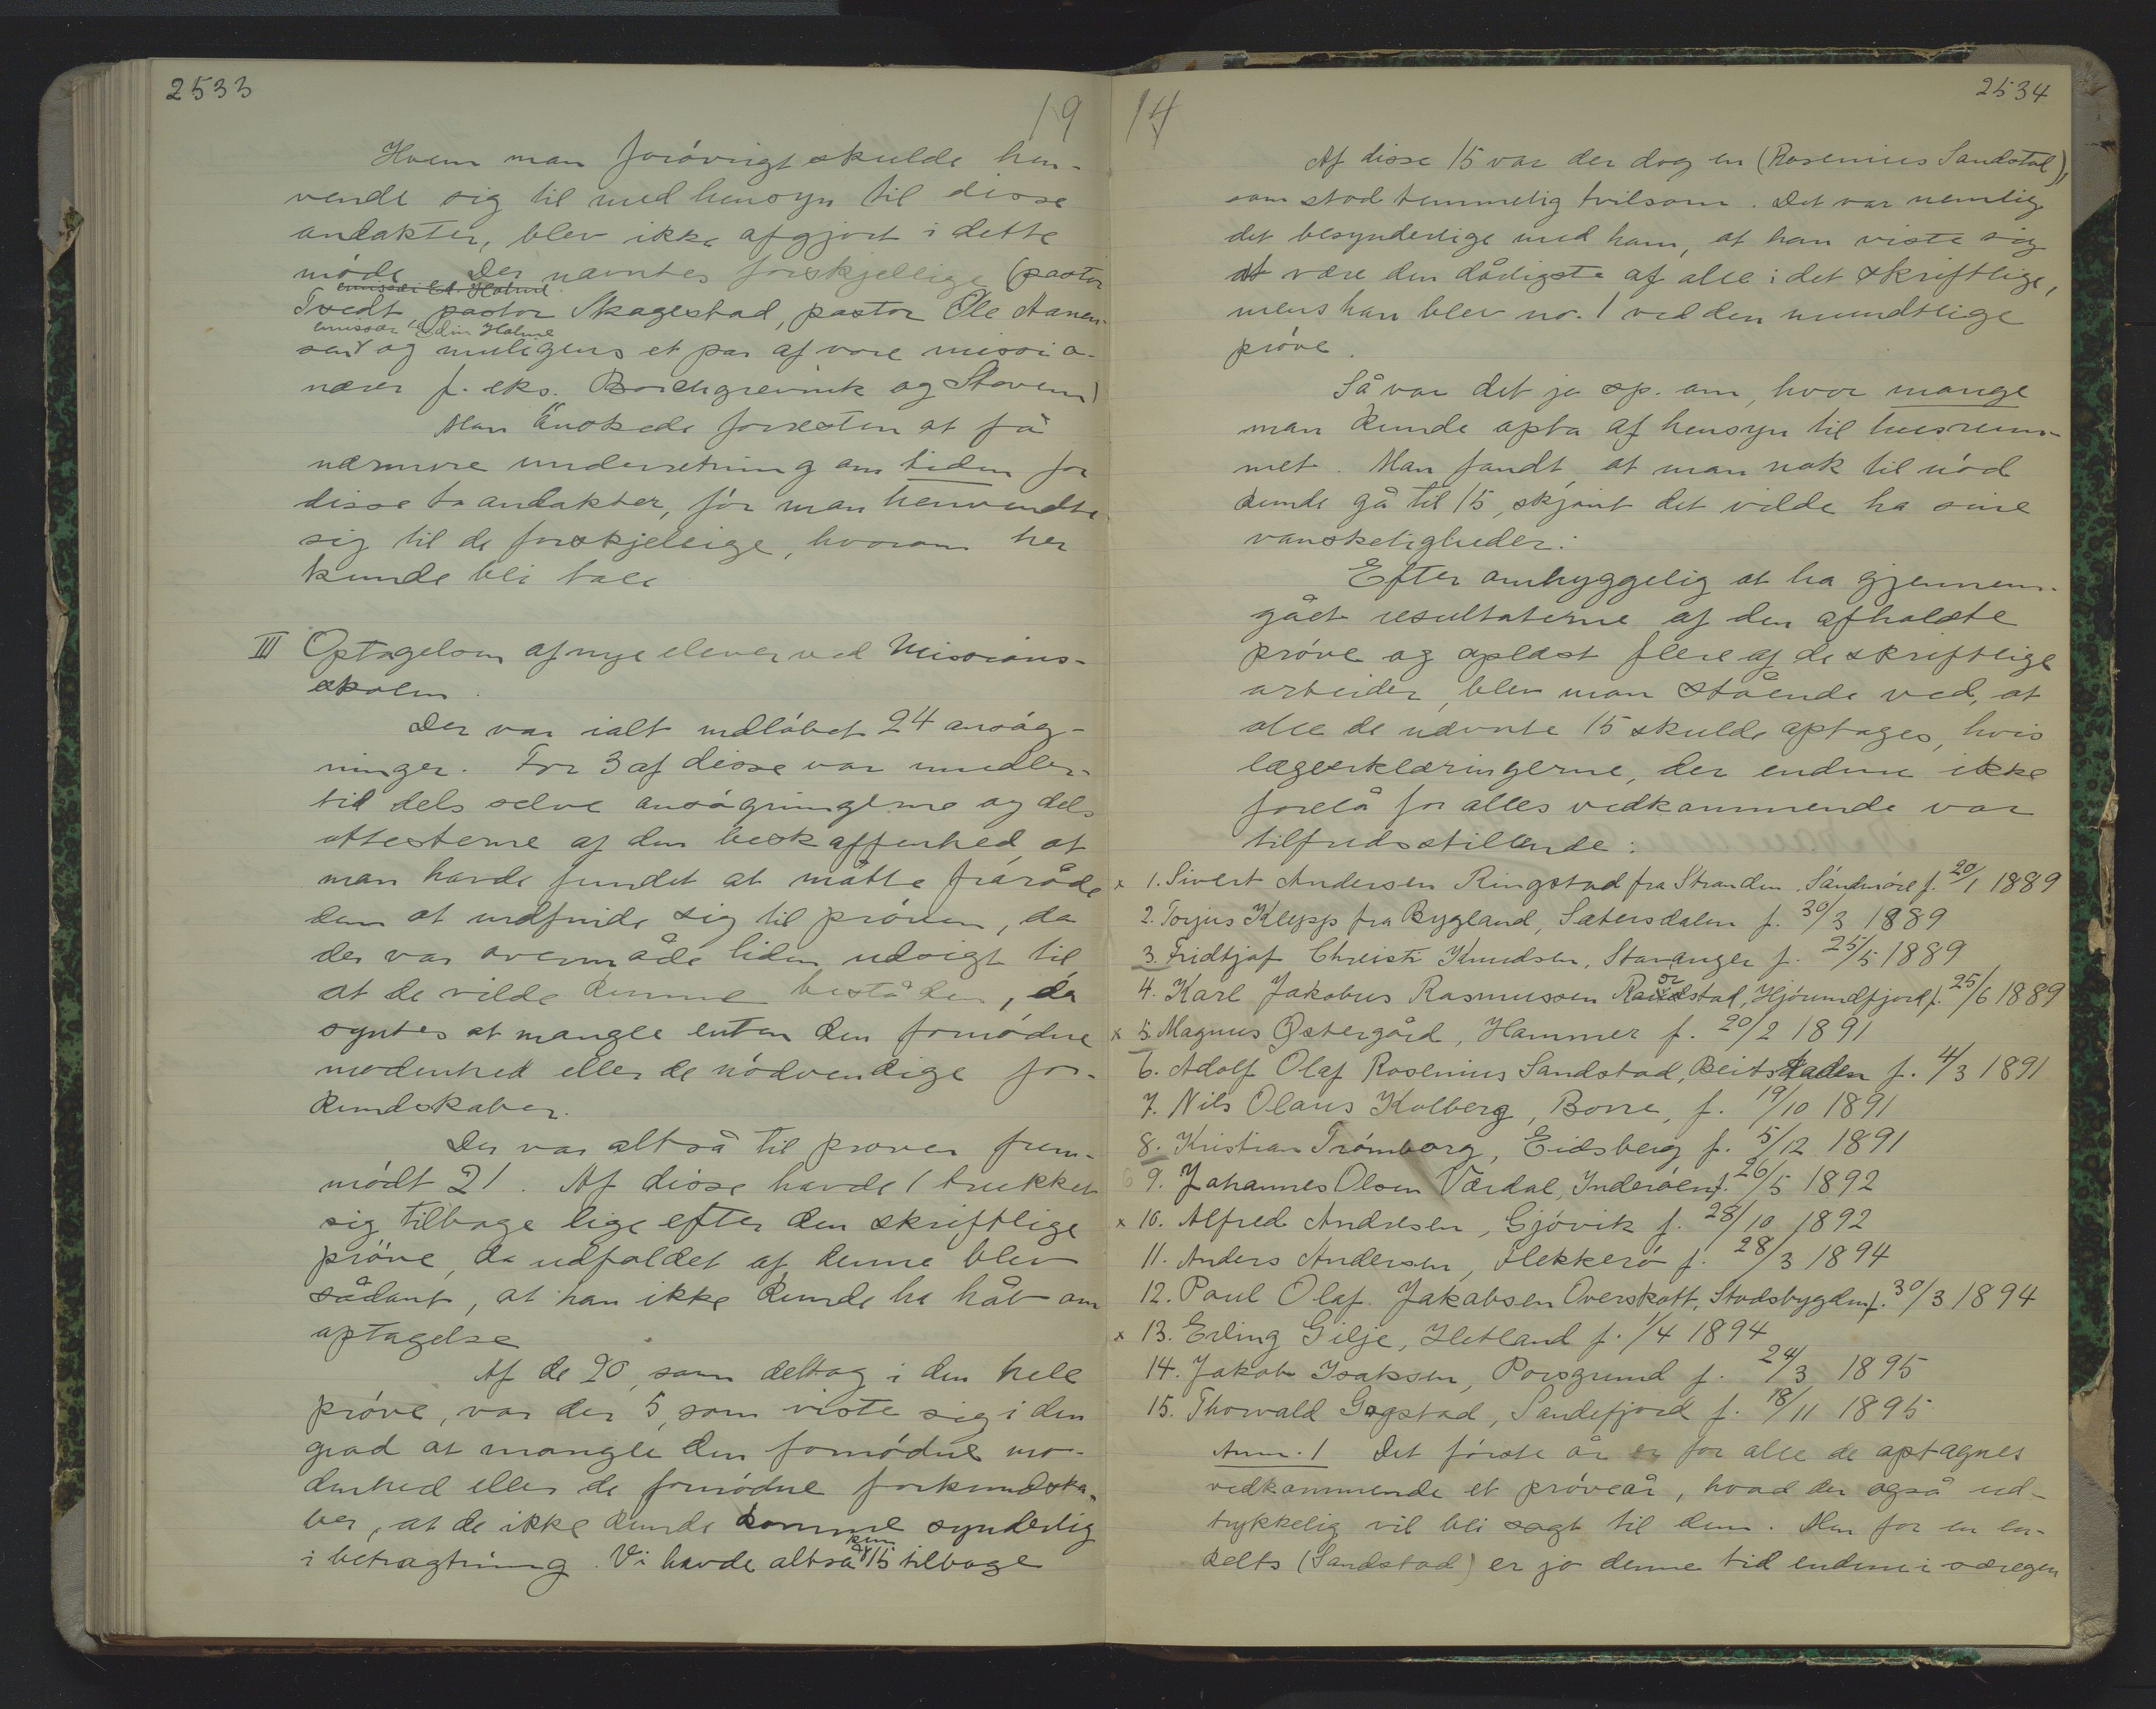 2533
19
Hvem man forøvrigt skulde hen-
vende sig til med hensyn til disse
andakter, blev ikke afgjort i dette
møde. Der nævntes forskjellige (pastor
emissær Ed. Holme
Tvedt, pastor Skagestad, pastor Ole Aanen-
emissær Edin Holme
sen og muligens et par af vore missio-
nærer f. eks. Borchgrevink og Stovem)
Man ønskede forresten at få
nærmere underretning om tiden for
disse to andakter, før man henvendte
sig til de forskjellige, hvorom her
kunde bli tale
III Optagelsen af nye elever ved Missions-
skolen.
Der var ialt indløbet 24 ansøg-
ninger. For 3 af disse var imidler-
tid dels selve ansøgningerne og dels
attesterne af den beskaffenhed, at
man havde fundet at måtte fraråde
dem at indfinde sig til prøven, da
der var overmåde liden udsigt til
at de vilde kunne bestå den, da
syntes at mangle enten den fornødne
modenhed eller de nødvendige for-
kundskaber.
Der var altså til prøven frem-
mødt 21. Af disse havde 1 trukket
sig tilbage lige efter den skriftlige
prøve, da udfaldet af denne blev
sådant, at han ikke kunde ha håb om
optagelse
Af de 20, som deltog i den hele
prøve, var der 5, som viste sig i den
grad at mangle den fornødne mo-
denhed eller de fornødne forkundska-
ber, at de ikke kunde komme synderlig
kun
i betragtning. Vi havde altså 15 tilbage
14
2534
Af disse 15 var der dog en (Rosenius Sandstad),
som stod temmelig tvilsom. Det var nemlig
det besynderlige med ham, at han viste sig
at være den dårligste af alle i det skriftlige,
mens han blev no. 1 ved den mundtlige
prøve.
Så var det jo sp. om, hvor mange
man kunde opta af hensyn til husrum-
met. Man fandt, at man nok til nød
kunde gå til 15, skjønt det vilde ha sine
vanskeligheder.
Efter omhyggelig at ha gjennem-
gået resultaterne af den afholdte
prøve og oplæst flere af de skriftlige
arbeider, blev man stående ved, at
alle de nævnte 15 skulde optages, hvis
lægeerklæringerne, der endnu ikke
forelå for alles vedkommende var
tilfredsstillende:
x 1. Sivert Andersen Ringstad fra Stranden, Søndmøre f. 20/1 1889
2. Torjus Klepp fra Bygland, Sætersdalen f. 30/3 1889
3. Fridtjof Christi Knudsen, Stavanger f. 25/5 1889
4. Karl Jakobus Rasmussen Randstad, Hjørundfjord f. 25/6 1889
x 5. Magnus Østergård, Hammer f. 20/2 1891
6. Adolf Olaf Rosenius Sandstad, Beitstaden f. 4/3 1891
7. Nils Olaus Kolberg, Borre, f. 19/10 1891
8. Kristian Trømborg, Eidsberg f. 5/12 1891
9. Johannes Olsen Værdal, Inderøen f. 26/5 1892
x 10. Alfred Andresen, Gjøvik f. 28/10 1892
11. Anders Andersen, Flekkerø f. 28/3 1894
12. Paul Olaf Jakobsen Overskott, Stadsbygden f. 30/3 1894
x 13. Erling Gilje, Hetland f. 1/4 1894
14. Jakob Isaksen, Porsgrund f. 24/3 1895
15. Thorvald Gogstad, Sandefjord f. 18/11 1895
Anm. 1 Det første år er for alle de optagnes
vedkommende et prøveår, hvad der også ud-
trykkelig vil bli sagt til dem. Men for en en-
kelts (Sandstad) er jo denne tid endnu i særegen